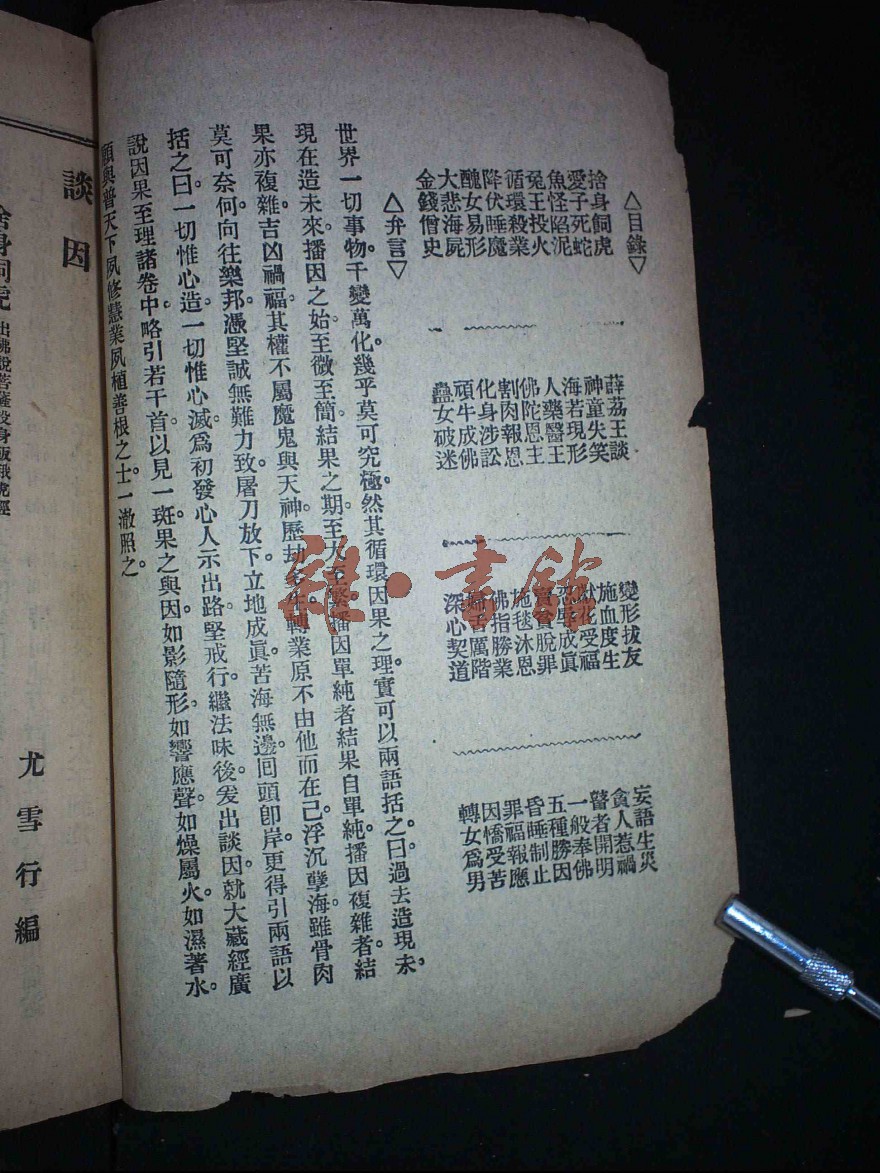 △目錄▽
捨身飼虎
愛子死蛇
魚怪陷泥
兔王投火
循環殺業
降伏睡魔
醜女易形
大悲海屍
金錢僧史
薛荔王談
神童失笑
海若現形
人藥醫王
佛陀恩主
割肉報恩
化身涉訟
頑牛成佛
蠱女破迷
變形拔友
施血度生
獻花受福
忍辱成眞
賣食脫罪
施毯沐恩
佛指勝業
厲階
深心契道
妄語生災
貪人惹禍
瞽者開明
一般奉佛
五種勝因
昏睡制止
罪福報應
因憍受苦
轉女爲男
△弁言▽
世界一切事物。千變萬化。幾乎莫可究極。然其循環因果之理。實可以兩語括之。曰過去造現未。
現在造未來。播因之始。至微至簡。結果之期。至大至繁。播因單純者。結果自單純。播因複雜者。結
果亦複雜。吉凶禍福。其權不屬魔鬼與天神。歷劫多生。轉業原不由他而在己。浮沉孽海。雖骨肉
莫可奈何。向往樂邦。憑堅誠無難力致。屠刀放下。立地成眞。苦海無邊。囘頭卽岸。更得引兩語以
括之曰。一切惟心造。一切惟心滅。爲初發心人示出路。堅戒行。繼法味後。发出談因。就大藏經廣
說因果至理諸卷中。略引若干首。以見一斑。果之與因。如影隨形。如響應聲。如燥屬火。如濕著水。
願與普天下夙修慧業夙植善根之士。一澈照之。
談因
尤雪行編
捨身飼虎 出佛說菩薩投身飯餓虎經
雜·書館